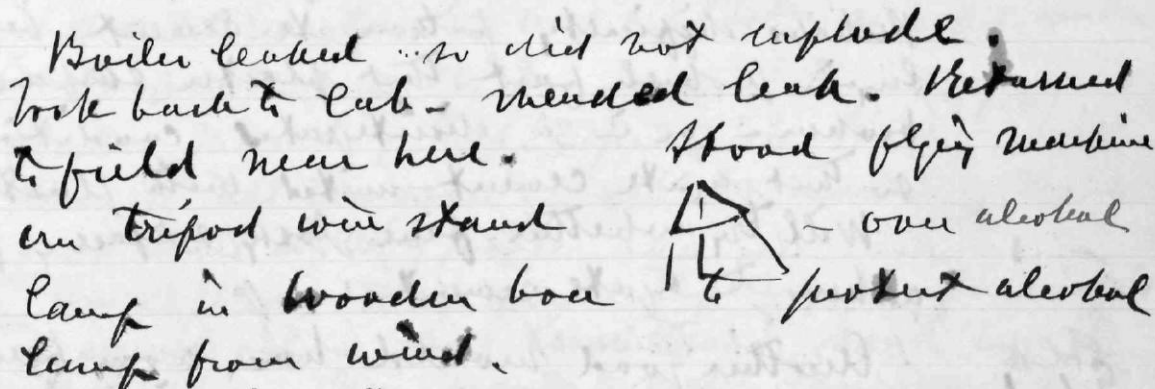 Boiler leaked so did not explode.
Took back to Lab - mended leak. Returned
to field near here. Stood flying machine
on tripod wire stand - over alcohol
lamp in wooden box to protect alcohol
lamp from wind.